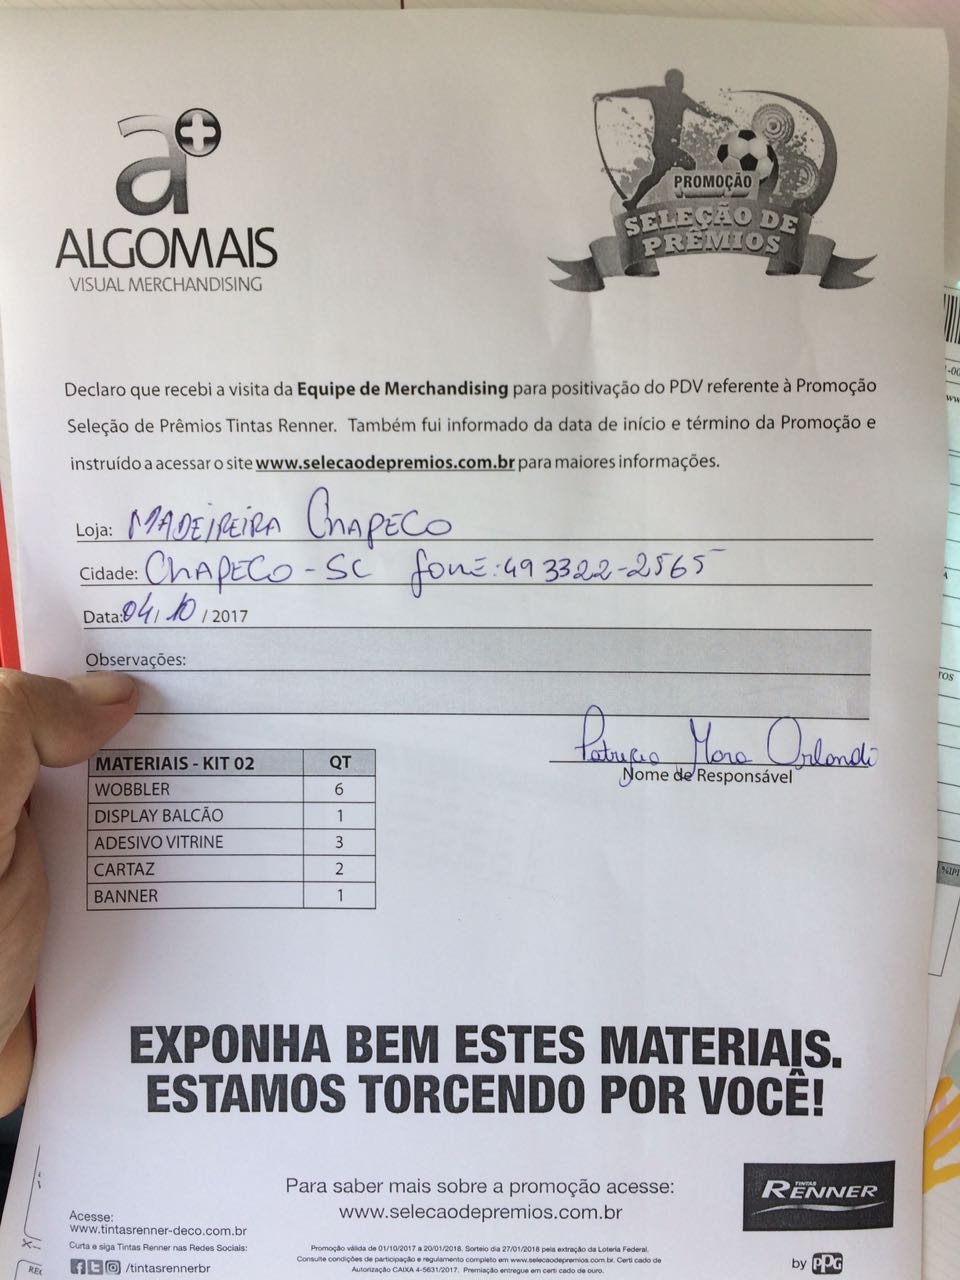 a+
ALGOMAIS
VISUAL MERCHANDISING
PROMOÇÃO
SELEÇÃO DE
PRÊMIOS
Declaro que recebi a visita da Equipe de Merchandising para positivação do PDV referente à Promoção
Seleção de Prêmios Tintas Renner. Também fui informado da data de início e término da Promoção e
instruído a acessar o site www.selecaodepremios.com.br para maiores informações.
Loja: MADEIREIRA CHAPECO
Cidade: CHAPECO - SC fone: 49 3322-2565
Data: 04/10/2017
Observações:
Orlandi
Nome de Responsável
MATERIAIS - KIT 02 QT
WOBBLER 6
DISPLAY BALCÃO 1
ADESIVO VITRINE 3
CARTAZ 2
BANNER 1
EXPONHA BEM ESTES MATERIAIS.
ESTAMOS TORCENDO POR VOCÊ!
Para saber mais sobre a promoção acesse:
www.selecaodepremios.com.br
TINTAS
RENNER
by PPG
Acesse:
www.tintasrenner-deco.com.br
Curta e siga Tintas Renner nas Redes Sociais:
/tintasrennerbr
Promoção válida de 01/10/2017 a 20/01/2018. Sorteio dia 27/01/2018 pela extração da Loteria Federal.
Consulte condições de participação e regulamento completo em www.selecaodepremios.com.br. Certi cado de
Autorização CAIXA 4-5631/2017. Premiação entregue em certi cado de ouro.